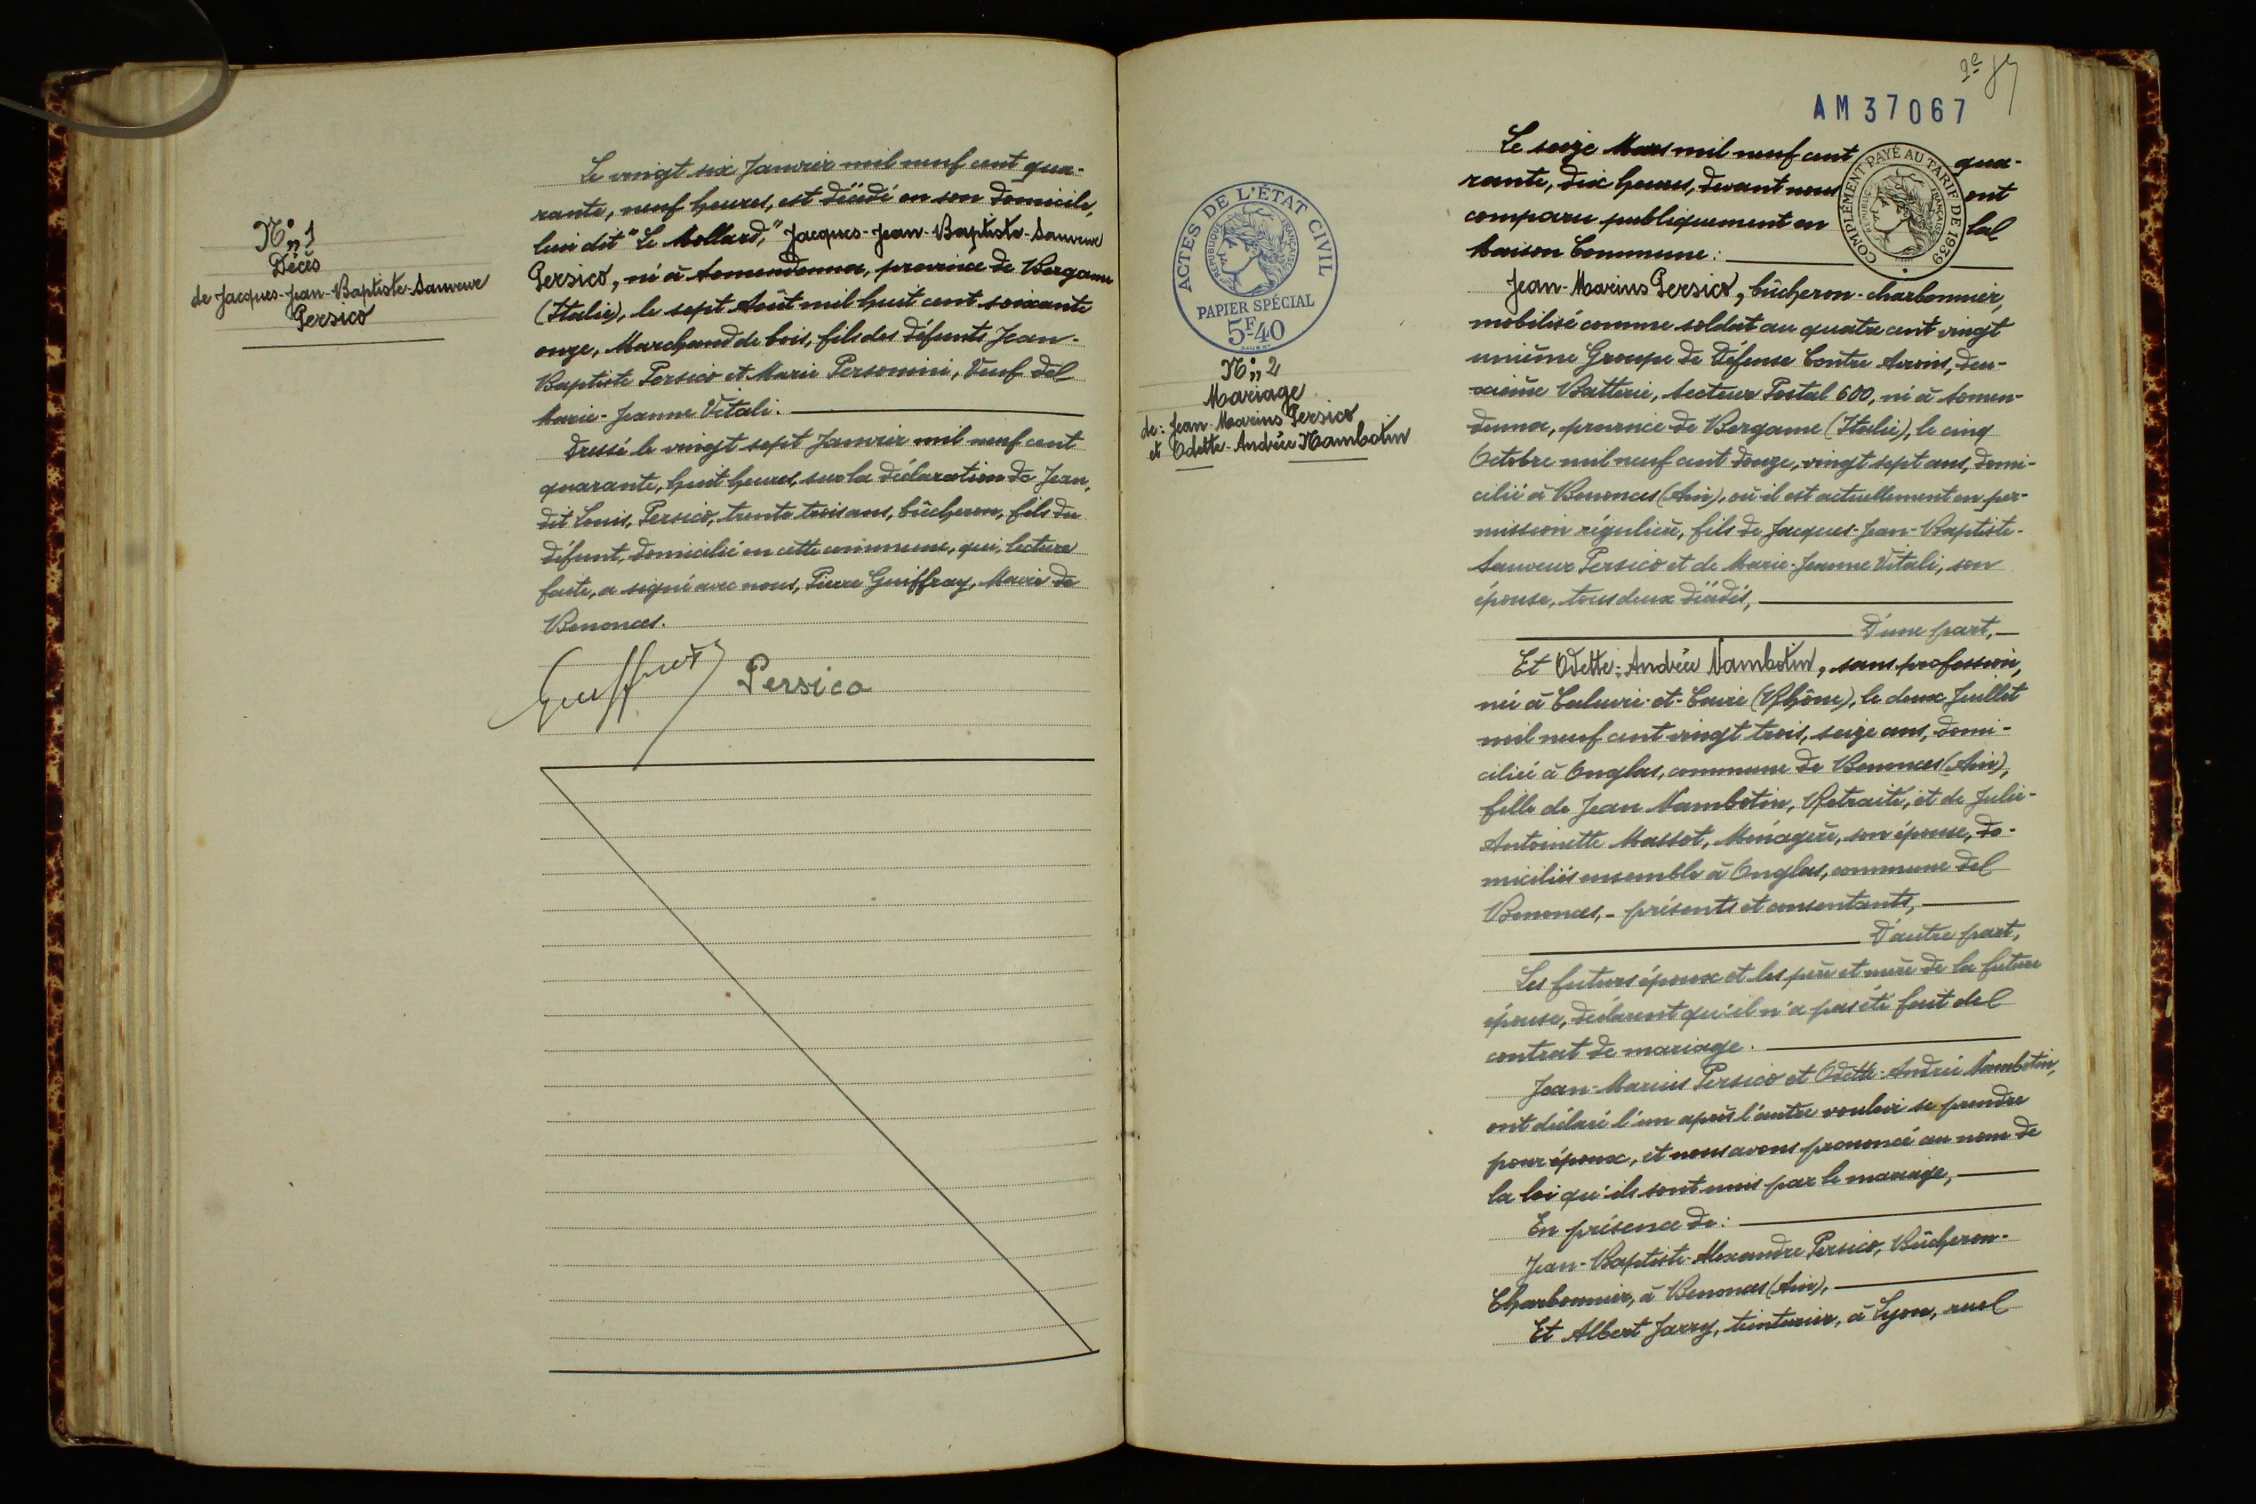 N°„ 1
Décès
de Jacques-Jean-Baptiste-Sauveur
Persico
Le vingt six Janvier mil neuf cent qua-
rante, neuf heures, est décédé en son domicile,
lieu dit "Le Mollard," Jacques-Jean-Baptiste-Sauveur
Persico, né à Somendenna, province de Bergame
(Italie), le sept Août mil huit cent soixante
onze, Marchand de bois, fils des défunts Jean-
Baptiste Persico et Marie Personini, Veuf de
Marie-Jeanne Vitali.
Dressé le vingt sept Janvier mil neuf cent
quarante, huit heures, sur la déclaration de Jean,
dit Louis, Persico, trente trois ans, bûcheron, fils du
défunt, domicilié en cette commune, qui, lecture
faite, a signé avec nous, Pierre Guiffray, Maire de
Benonces.
Persico
2e
AM37067
ACTES DE L'ÉTAT CIVIL
RÉPUBLIQUE FRANÇAISE
PAPIER SPÉCIAL
5F40
COMPLÉMENT PAYÉ AU TARIF DE 1939
RÉPUBLIQUE FRANÇAISE
N°„ 2
Mariage
de: Jean-Marius Persico
et Odette-Andrée Nambotin
Le seize Mars mil neuf cent qua-
rante, dix heures, devant nous ont
comparu publiquement en la
Maison Commune:
Jean-Marius Persico, bûcheron-charbonnier,
mobilisé comme soldat au quatre cent vingt
unième Groupe de Défense Contre Avions, deu-
xième Batterie, Secteur Postal 600, né à Somen-
denna, province de Bergame (Italie), le cinq
Octobre mil neuf cent douze, vingt sept ans, domi-
cilié à Benonces (Ain), où il est actuellement en per-
mission régulière, fils de Jacques-Jean-Baptiste-
Sauveur Persico et de Marie-Jeanne Vitali, son
épouse, tous deux décédés,
D'une part,
Et Odette-Andrée Nambotin, sans profession,
née à Caluire-et-Cuire (Rhône), le deux Juillet
mil neuf cent vingt trois, seize ans, domi-
ciliée à Onglas, commune de Benonces (Ain),
fille de Jean Nambotin, Retraité, et de Julie-
Antoinette Massot, Ménagère, son épouse, do-
miciliés ensemble à Onglas, commune de
Benonces,- présents et consentants,
D'autre part,
Les futurs époux et les père et mère de la future
épouse, déclarent qu'il n'a pas été fait de
contrat de mariage.
Jean-Marius Persico et Odette-Andrée Nambotin,
ont déclaré l'un après l'autre vouloir se prendre
pour époux, et nous avons prononcé au nom de
la loi qu'ils sont unis par le mariage,
En présence de:
Jean-Baptiste-Alexandre Persico, Bûcheron-
Charbonnier, à Benonces (Ain),
Et Albert Jarry, teinturier, à Lyon, rue